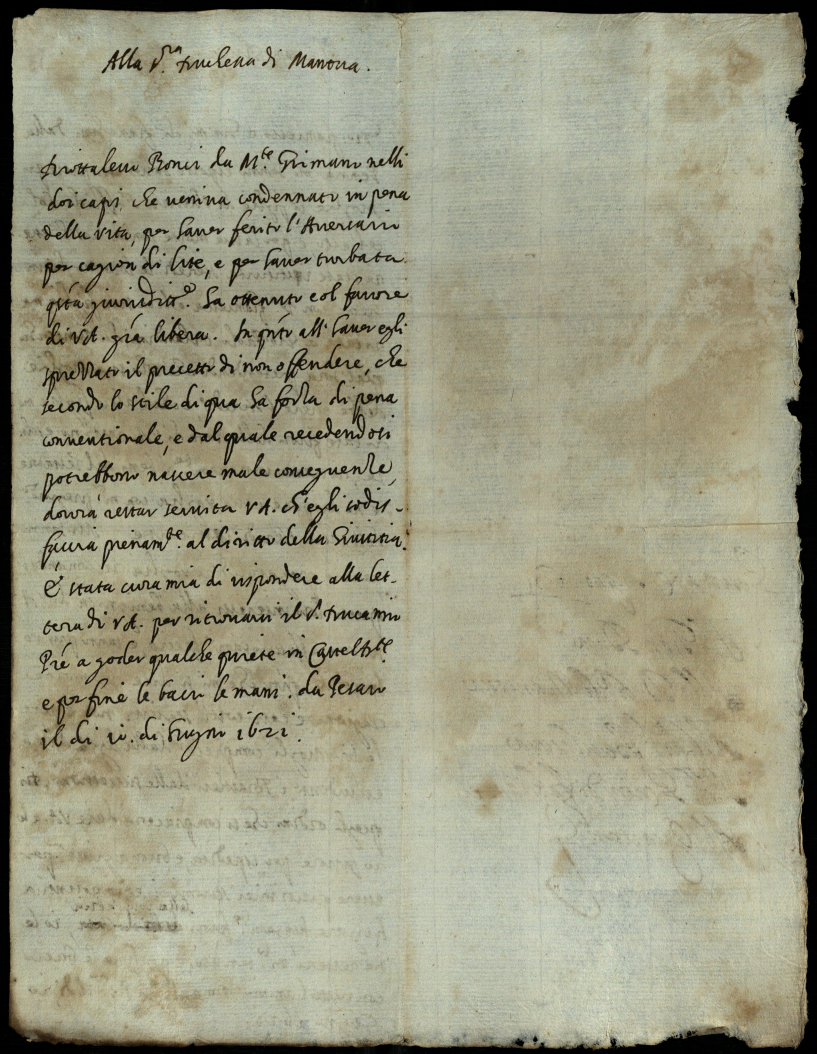 Alla S.ra Duchessa di Mantova.
Bonci da M.te Grimano nelli
doi capi che veniva condennato in pena
della vita, per haver ferito l'Aversario
per cagion di lite, e per haver turbata
q.sta giurisditt.e ha ottenuto col favore
di V.A. già libera. In q.to all'haver egli
sprezzato il precetto di non offendere, che
secondo lo stile di qua ha forza di pena
conventionale, e dal quale recedendosi
potrebbono nascere male conseguenze,
dovrà restar servita V.A. ch'egli sodis-
faccia pienam.te al diritto della Giustitia.
È stata cura mia di rispondere alla let-
tera di V.A. per il S.
Piè a goder qualche quiete in
e per fine le bacio le mani. da Pesaro
il di 10. di Giugno 1621.